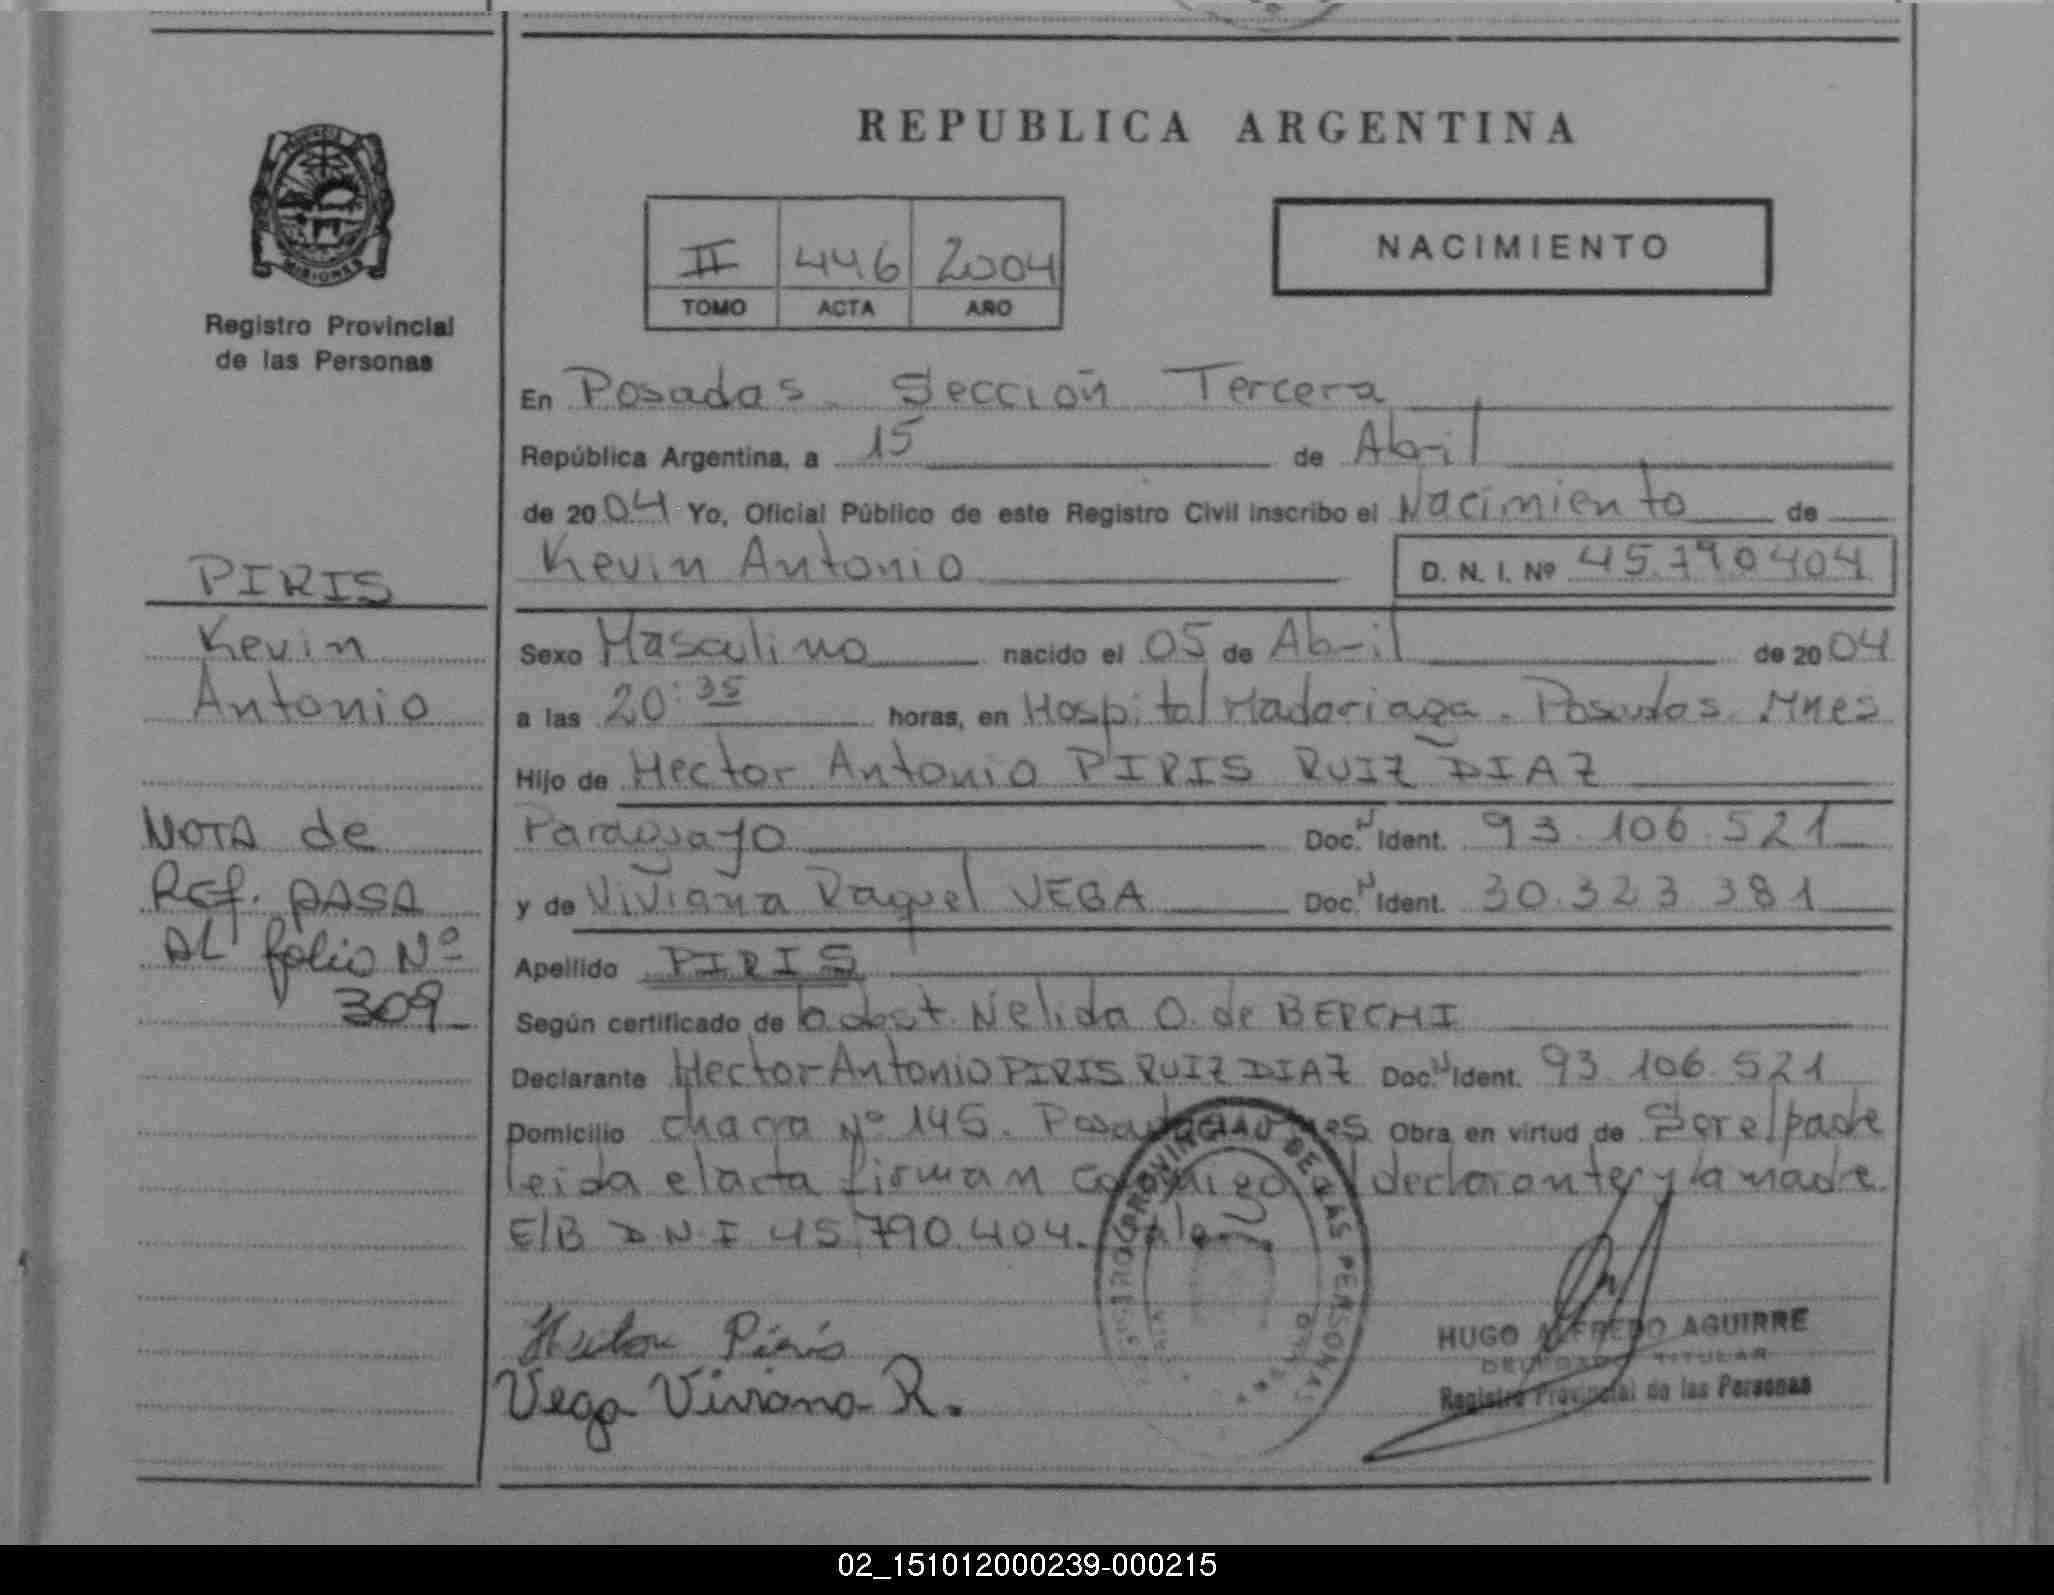 REPUBLICA ARGENTINA
PROVINCIA
MISIONES
Registro Provincial
de las Personas
II 446 2004
TOMO ACTA AÑO
NACIMIENTO
En Posadas. Sección Tercera
República Argentina, a 15 de Abril
de 2004 Yo, Oficial Público de este Registro Civil inscribo el Nacimiento de
Kevin Antonio D. N. I. Nº 45.790404
PIRIS
Kevin
Antonio
NOTA de
Ref. PASA
AL folio Nº
309
Sexo Masculino nacido el 05 de Abril de 2004
a las 20:35 horas, en Hospital Madariaga. Posadas. Mnes
Hijo de Hector Antonio PIRIS RUIZ DIAZ
Paraguayo Doc. N Ident. 93.106.521
y de Viviana Raquel VEGA Doc. N Ident. 30.323.381
Apellido PIRIS
Según certificado de la obst. Nelida O. de BERCHI
Declarante Hector Antonio PIRIS RUIZ DIAZ Doc. N Ident. 93.106.521
Domicilio chacra Nº 145. Posadas Mnes Obra en virtud de Ser el padre
leida el acta firman conmigo el declarante y la madre.
E/B D.N.I 45.790.404. Vale
Hector Piris
Vega Viviana R.
PROVINCIAL DE LAS PERSONAS
HUGO ALFREDO AGUIRRE
DELEGADO TITULAR
Registro Provincial de las Personas
02_151012000239-000215